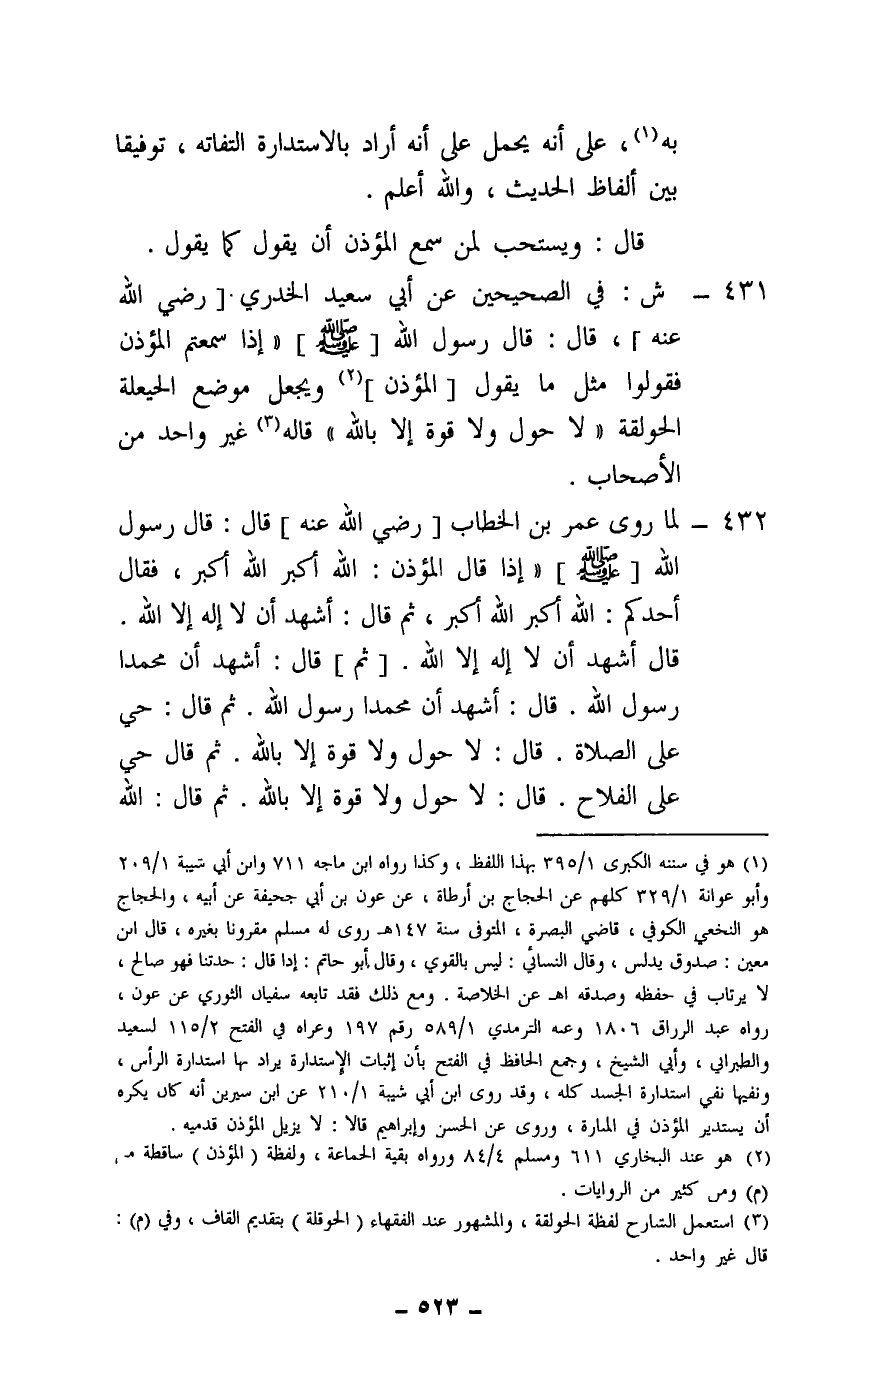 به(١) ، على أنه يحمل على أنه أراد بالاستدارة التفاته ، توفيقا
بين ألفاظ الحديث ، والله أعلم .
قال : ويستحب لمن سمع المؤذن أن يقول كما يقول .
٤٣١ – ش : في الصحيحين عن أبي سعيد الخدري [ رضي الله
عنه ] ، قال : قال رسول الله [ ﷺ ] « إذا سمعتم المؤذن
فقولوا مثل ما يقول [ المؤذن ](٢) ويجعل موضع الحيعلة
الحولقة « لا حول ولا قوة إلا بالله » قاله(٣) غير واحد من
الأصحاب .
٤٣٢ – لما روى عمر بن الخطاب [ رضي الله عنه ] قال : قال رسول
الله [ ﷺ ] « إذا قال المؤذن : الله أكبر الله أكبر ، فقال
أحدكم : الله أكبر الله أكبر ، ثم قال : أشهد أن لا إله إلا الله .
قال أشهد أن لا إله إلا الله . [ ثم ] قال : أشهد أن محمدا
رسول الله . قال : أشهد أن محمدا رسول الله . ثم قال : حي
على الصلاة . قال : لا حول ولا قوة إلا بالله . ثم قال حي
على الفلاح . قال : لا حول ولا قوة إلا بالله . ثم قال : الله
(١) هو في سننه الكبرى ٣٩٥/١ بهذا اللفظ ، وكذا رواه ابن ماجه ٧١١ وابن أبي شيبة ٢٠٩/١
وأبو عوانة ٣٢٩/١ كلهم عن الحجاج بن أرطاة ، عن عون بن أبي جحيفة عن أبيه ، والحجاج
هو النخعي الكوفي ، قاضي البصرة ، المتوفى سنة ١٤٧هـ روى له مسلم مقرونا بغيره ، قال ابن
معين : صدوق يدلس ، وقال النسائي : ليس بالقوي ، وقال أبو حاتم : إذا قال : حدثنا فهو صالح ،
لا يرتاب في حفظه وصدقه اهـ عن الخلاصة . ومع ذلك فقد تابعه سفيان الثوري عن عون ،
رواه عبد الرزاق ١٨٠٦ وعنه الترمذي ٥٨٩/١ رقم ١٩٧ وعزاه في الفتح ١١٥/٢ لسعيد
والطبراني ، وأبي الشيخ ، وجمع الحافظ في الفتح بأن إثبات الإستدارة يراد بها استدارة الرأس ،
ونفيها نفي استدارة الجسد كله ، وقد روى ابن أبي شيبة ٢١٠/١ عن ابن سيرين أنه كان يكره
أن يستدير المؤذن في المنارة ، وروى عن الحسن وإبراهيم قالا : لا يزيل المؤذن قدميه .
(٢) هو عند البخاري ٦١١ ومسلم ٨٤/٤ ورواه بقية الجماعة ، ولفظة ( المؤذن ) ساقطة من
(م) ومن كثير من الروايات .
(٣) استعمل الشارح لفظة الحولقة ، والمشهور عند الفقهاء ( الحوقلة ) بتقديم القاف ، وفي (م) :
قال غير واحد .
– ٥٢٣ –